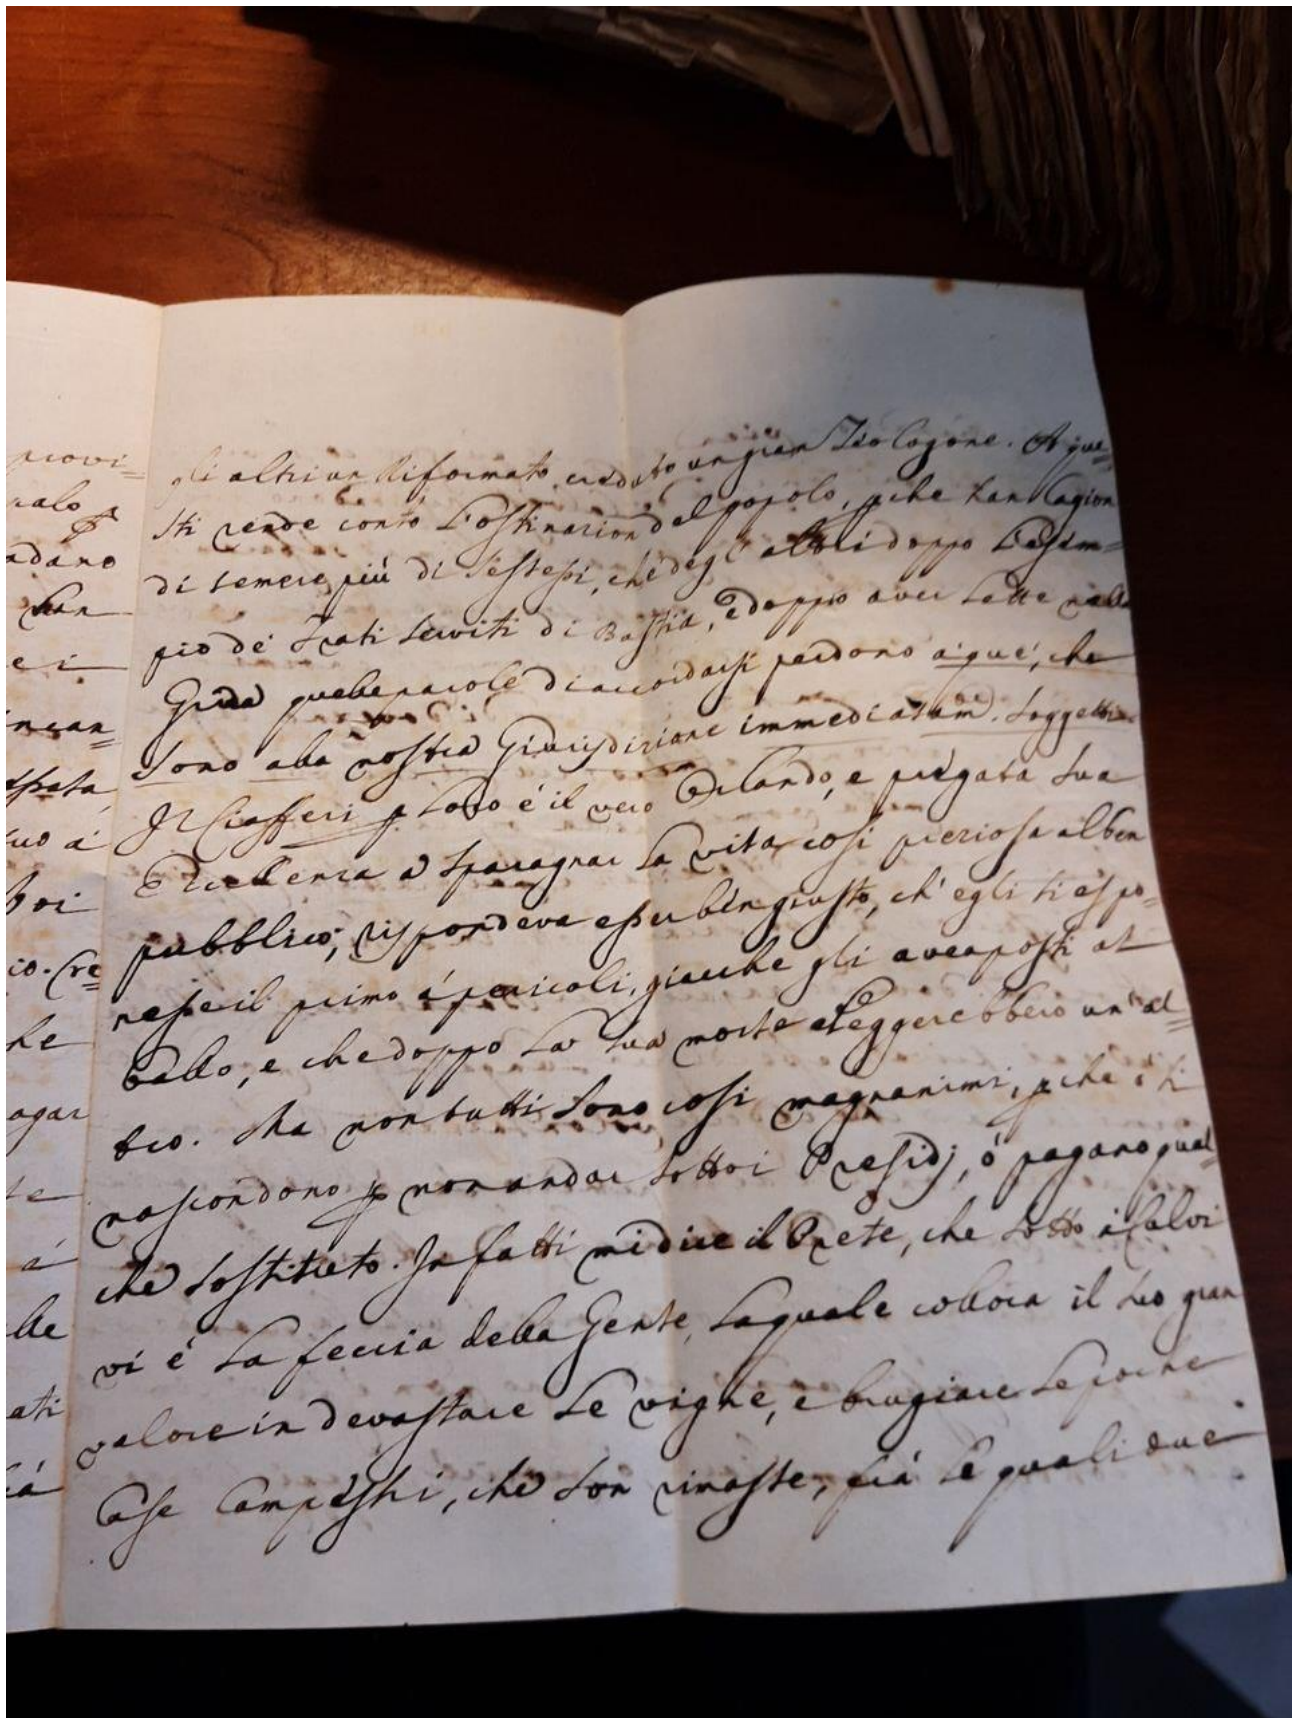 provi=
gli altri un Riformato creduto un gran Teologone. A que=
sti rende conto l'ostinazion del popolo, pche han cagion
di temere più di sestessi, che degl'altri doppo l'esem=
pio de' Frati Serviti di Bastia, e doppo aver lette nella
Grida quelle parole di accordarsi perdono a'que', che
sono alla nostra Giurisdizione immediatam. soggetti.
Il Ciafferi p loro é il vero Orlando, e pregata sua
Eccellenza a sparagnar la vita così preziosa al ben
pubblico, rispondeva esser ben giusto, ch'egli si espo=
nesse il primo á pericoli, giacche gli avea posti al
ballo, e che doppo la sua morte eleggerebbero un'al=
tro. Ma non tutti sono così magnanimi, pche ó si
nascondono p non andar sotto i Presidj, ó pagano qual=
che sostituto. In fatti mi dice il Prete, che sotto á Calvi
vi é la feccia della Gente, la quale colloca il suo gran
valore in devastare le vigne, e brugiare le poche
Case Campestri, che son rimaste, frá le quali due
adano
han
e i
atti
Poi
io. Cre=
he
agar
te
á
lle
ati